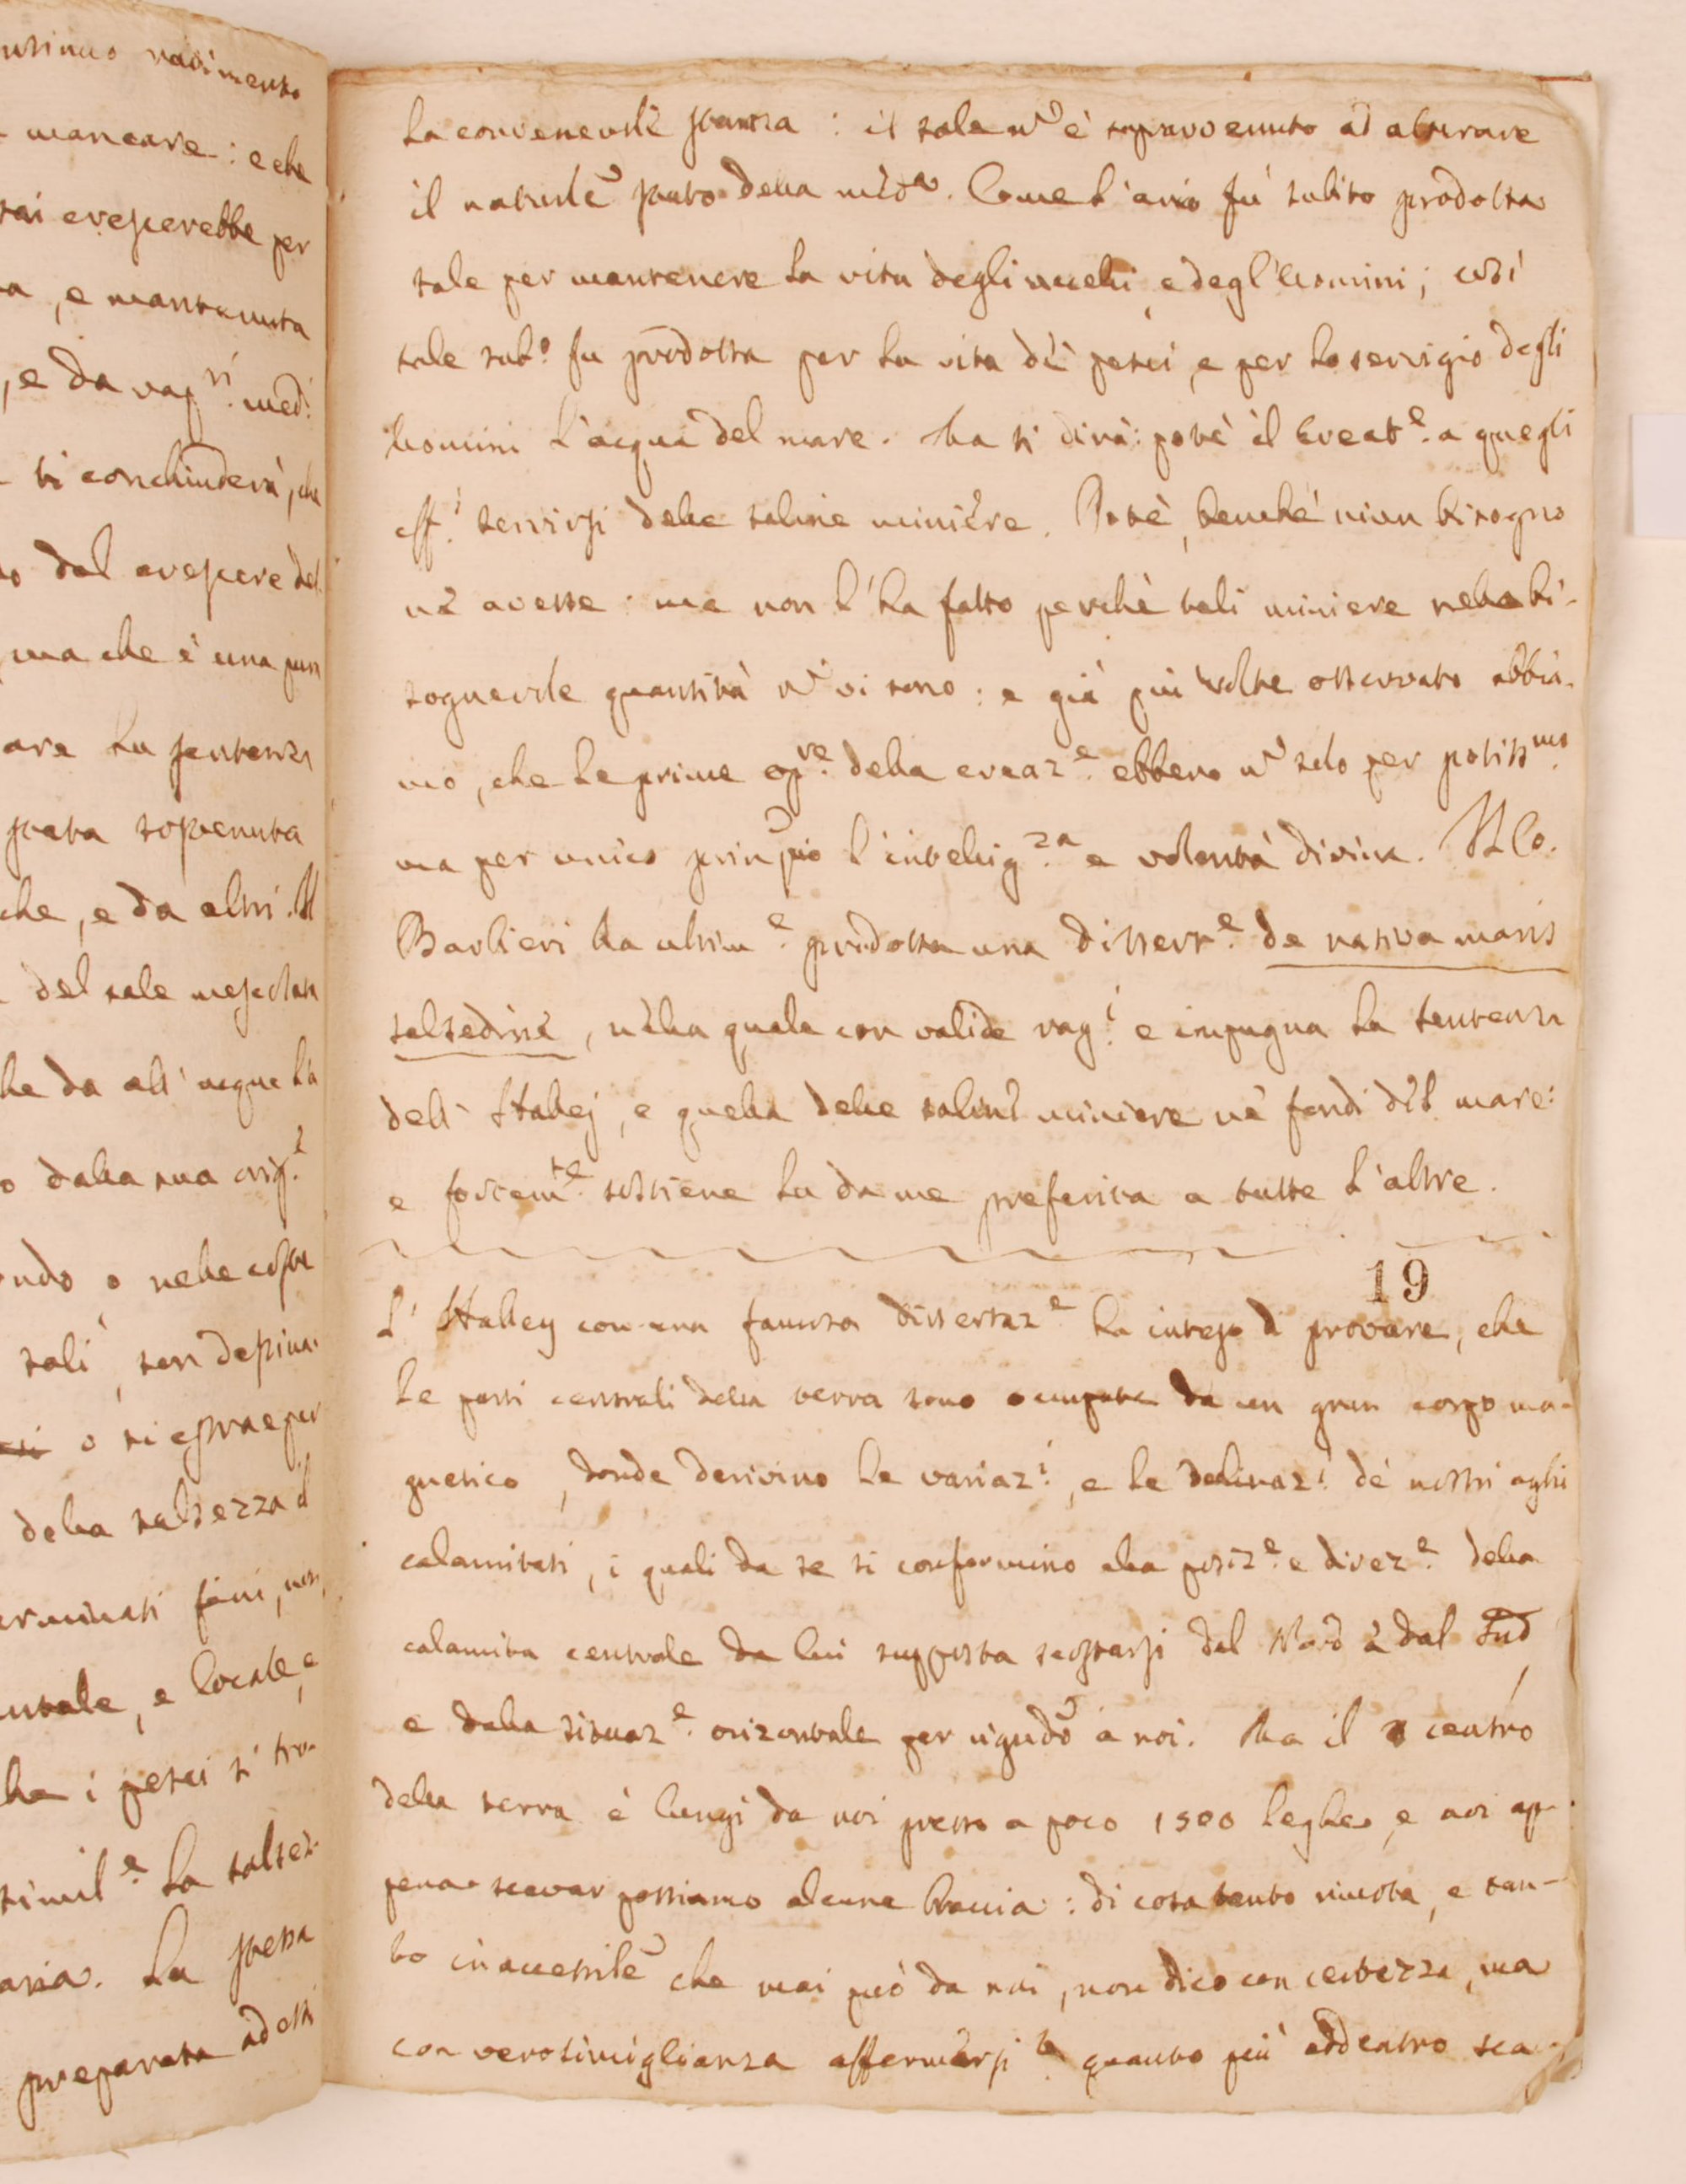 usimo navimento
mancare : e che
rai crescerebbe per
a, e mantenuta
, e da rag.ni med.
si conchiuderà, che
o dal crescere del
, ma che è una pura
are la sentenza
stata sopvenuta
che, e da altri. Il
del sale mescolata
he da all' acque la
o dalla sua orig.e
ondo o nelle coste
sali, son depina-
o si estrae per
della salsezza d
erminati fini, non
entale, e locale, e
he i pesci si tro-
simil.e la salsez-
aria. La stessa
preparata ad essi
la convenevole stanza : il sale nõ è sopravvenuto ad alterare
il naturale stato della med.a. Come l'aria fù subito prodotta
tale per mantenere la vita degli uccelli, e degl'huomini; così
tale sub.o fu prodotta per la vita de' pesci, e per lo servigio degli
huomini l'acqua del mare. Ma si dirà: potè il Creat.e a quegli
eff.i servirsi delle saline miniere. Potè, benchè niun bisogno
ne avesse: ma non l'ha fatto perchè tali miniere nella bi-
sognevole quantità nõ vi sono: e già più volte osservato abbia-
mo, che le prime op.re della creaz.e ebbero nõ solo per potiss.mo
ma per unico prinpio l'intellig.za e volontà divina. Il Co.
Barbieri ha ultim.e prodotta una dissert.e de nativa maris
salsedine, nella quale con valide rag.i e impugna la sentenza
dell' Halley, e quella delle saline miniere ne' fondi del mare:
e fortem.te sostiene la da me preferita a tutte l'altre.
19
L' Halley con una famosa dissertaz.e ha inteso di provare, che
le parti centrali della terra sono occupate da un gran corpo ma-
gnetico, donde derivino le variaz.i, e le declinaz.i de' nostri aghi
calamitati, i quali da se si conformino alla posiz.e e direz.e della
calamita centrale da lui supposta scostarsi dal Nord e dal Sud
e dalla situaz.e orizontale per rigudo a noi. Ma il centro
della terra è lungi da noi presso a poco 1500 leghe, e noi ap-
pena scavar possiamo alcune braccia: di cosa tanto rimota, e tan-
to inaccessibile che mai può da noi, non dico con certezza, ma
con verosimiglianza affermarsi? quanto più addentro sca-